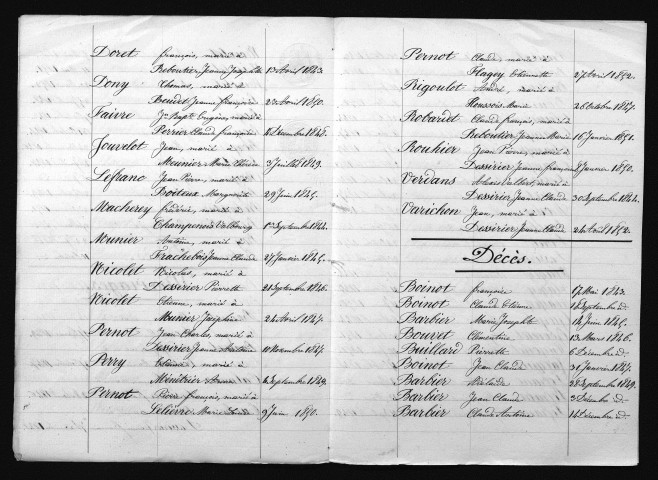 Doret François, marié à
Reboutier Jeanne Josephte 17 Avril 1843.
Dony Thomas, marié à
Beudet Jeanne françoise 23 Avril 1850.
Faivre Jn Bapt. Eugène, marié à
Perrier Claude françoise Décembre 1848.
Jouvelot Jean, marié à
Meunier Marie Thérèse 3 Juillet 1849.
Lefranc Jean Pierre, marié à
Boiteux Marguerite 29 Juin 1845.
Macherey frédéric, marié à
Champenois Valburg 1er Septembre 1844.
Munier Antoine, marié à
Frachebois Jeanne Claude 27 Janvier 1845.
Nicolet Nicolas, marié à
Dessirier Pierrette 21 Septembre 1846.
Nicolet Etienne, marié à
Munier Josephine 24 Avril 1847.
Pernot Jean Charles, marié à
Dessirier Jeanne 10 Novembre 1847.
Perry Etienne, marié à
Ménétrier Anne 4 Septembre 1849.
Pernot Pierre françois, marié à
Lelièvre Marie 9 Juin 1850.
Pernot Claude, marié à
Flagey Etiennette 27 Avril 1852.
Rigoulot André, marié à
Housson Marie 26 Octobre 1847.
Robardet Claude françois, marié à
Reboutier Jeanne Marie 16 Janvier 1851.
Rouhier Jean Pierre, marié à
Dessirier Jeanne françoise Janvier 1850.
Verdans marié à
Dessirier Jeanne Claude 30 Septembre 1844.
Varichon Jean, marié à
Dessirier Jeanne Claude 24 Avril 1852.
Décès.
Boinot françoise 17 Mai 1843.
Boinot Claude Etienne 1 Septembre d°.
Barbier Marie Josephte 14 Juin 1845.
Bouvet Clémentine 13 Mars 1846.
Buillard Pierrette 6 Décembre d°.
Boinot Jean Claude 31 Janvier 1847.
Barbier Adélaïde 28 Septembre 1849.
Barbier Jean Claude 3 Décembre d°.
Barbier Claude Antoine 14 Décembre d°.